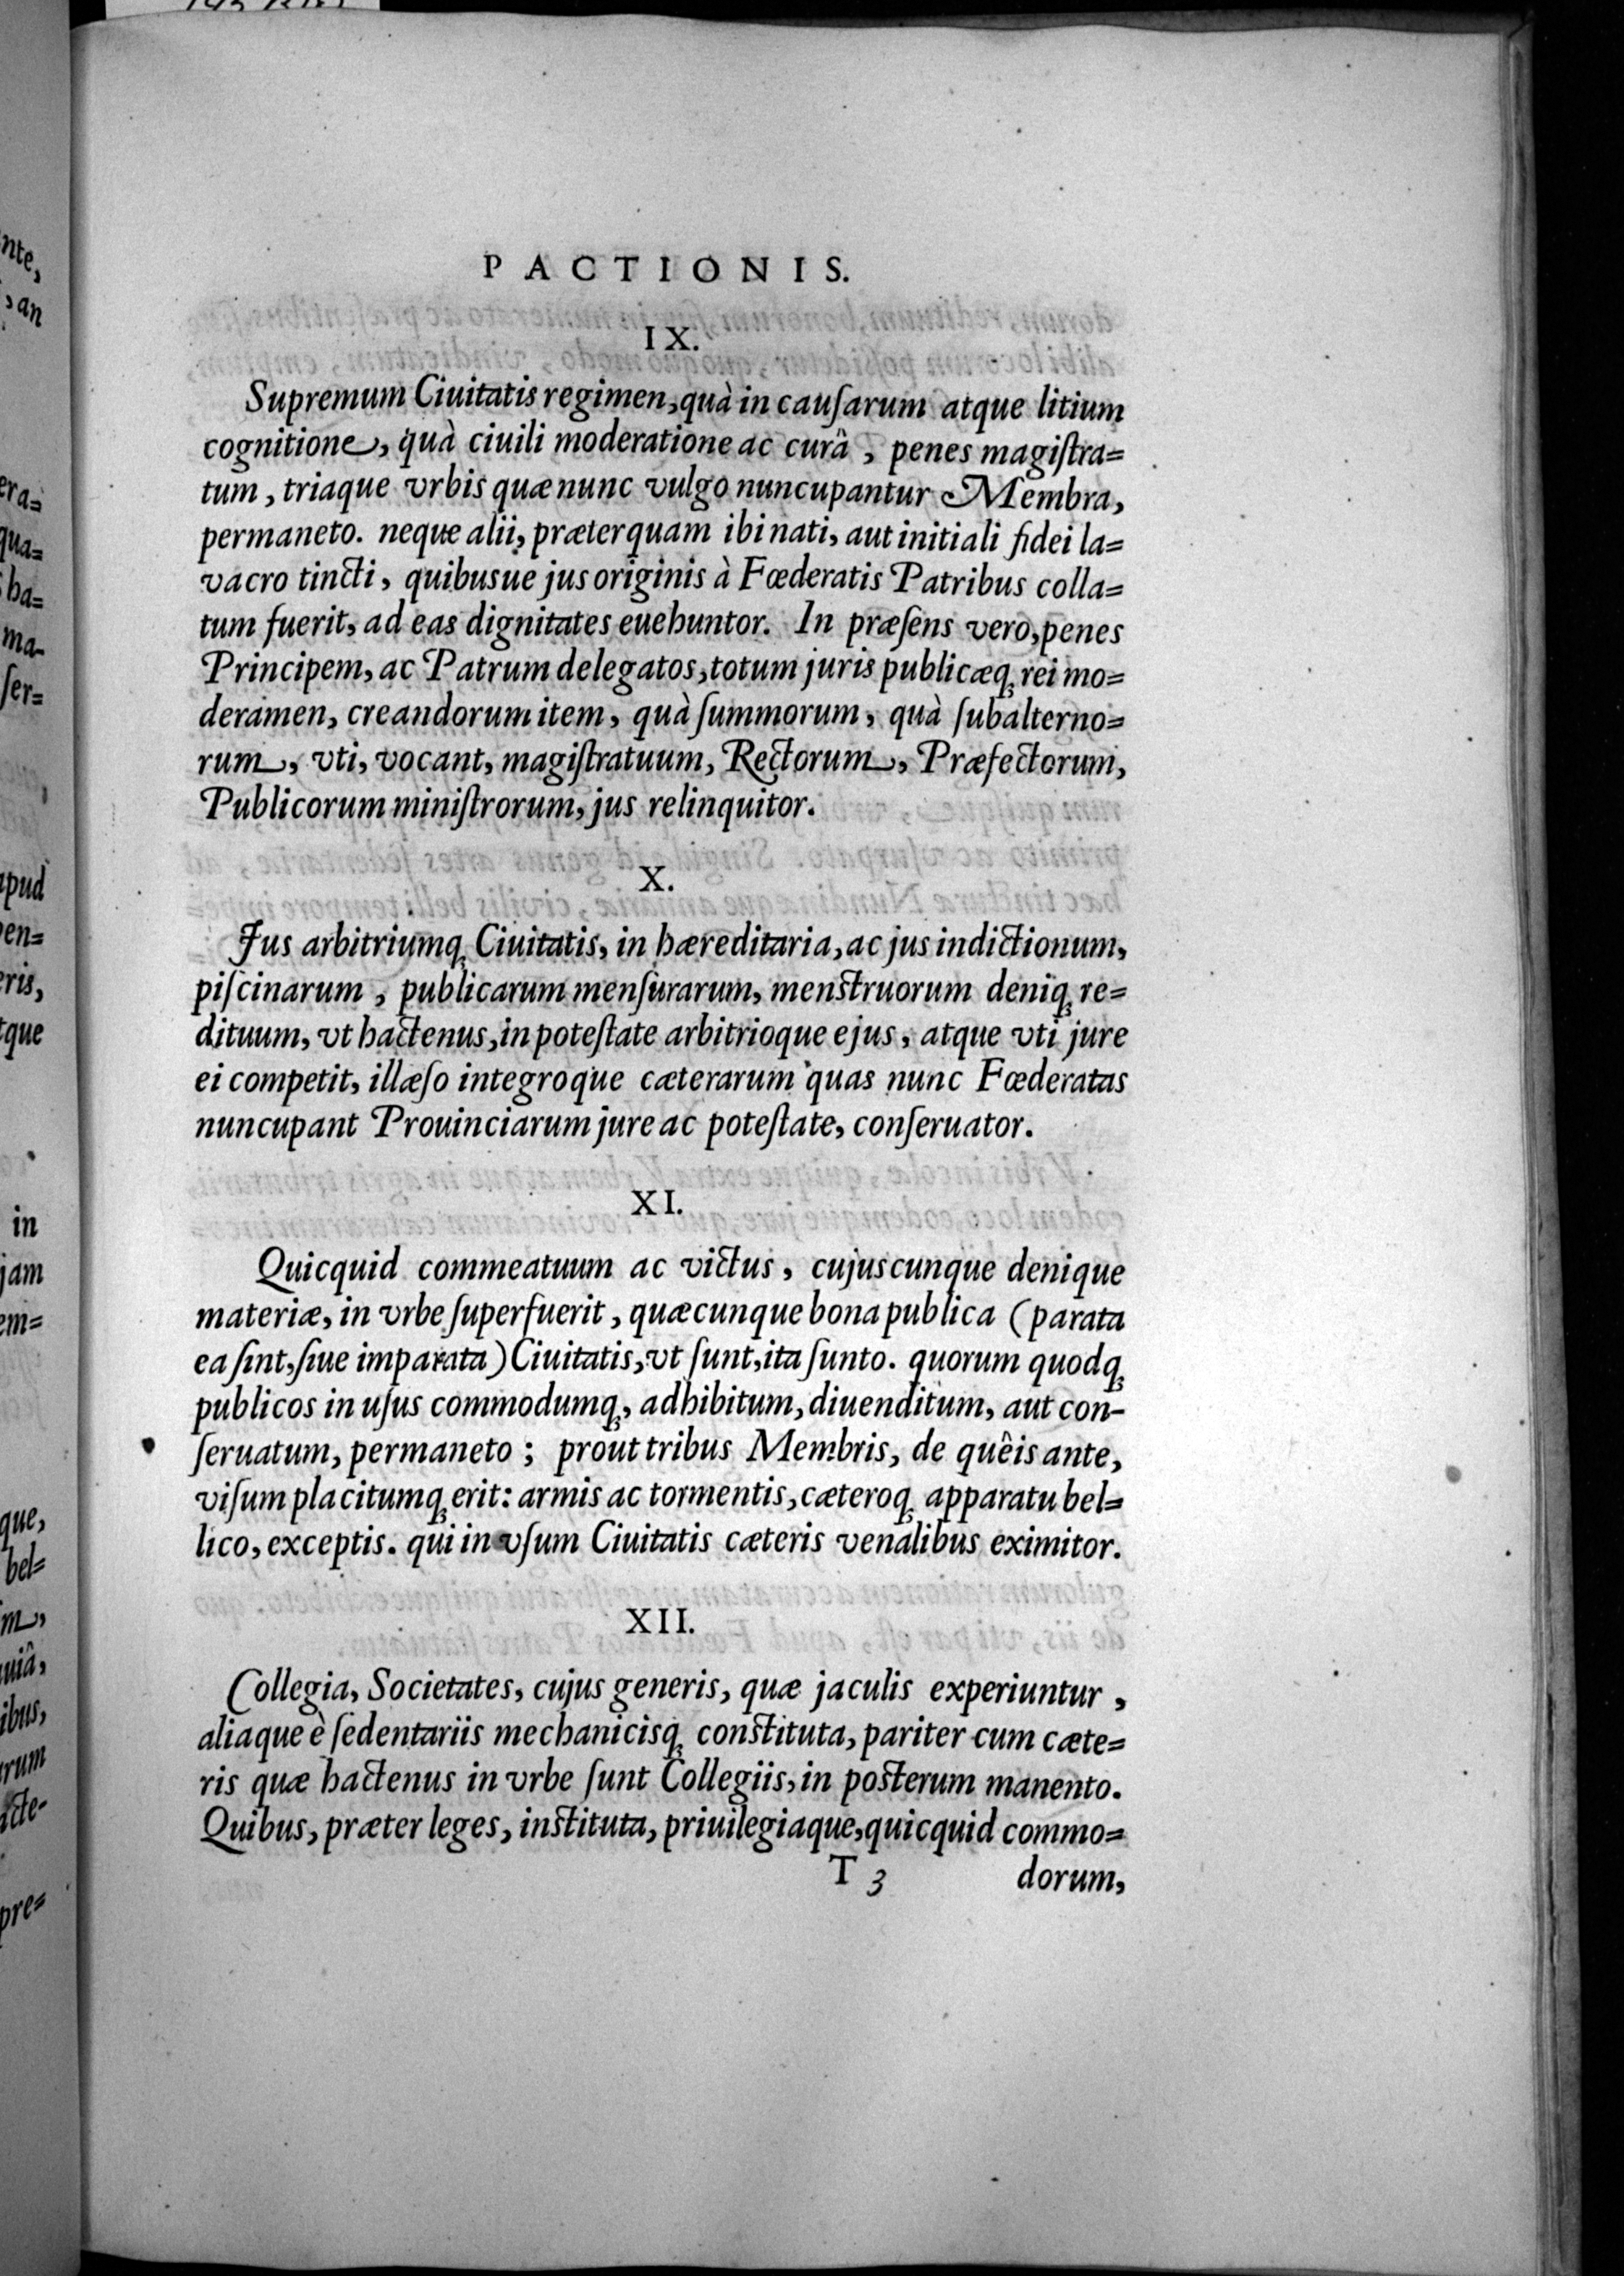 PACTIONIS.
IX.
Supremum Ciuitatis regimen, quà in cauſarum atque litium
cognitione, quà ciuili moderatione ac curâ, penes magiſtra=
tum, triaque vrbis quæ nunc vulgo nuncupantur Membra,
permaneto. neque alii, præterquam ibi nati, aut initiali fidei la=
vacro tincti, quibusue jus originis à Fœderatis Patribus colla=
tum fuerit, ad eas dignitates euehuntor. In præſens vero, penes
Principem, ac Patrum delegatos, totum juris publicæq; rei mo=
deramen, creandorum item, quà ſummorum, quà ſubalterno=
rum, vti, vocant, magiſtratuum, Rectorum, Præfectorum,
Publicorum miniſtrorum, jus relinquitor.
X.
Jus arbitriumq; Ciuitatis, in hæreditaria, ac jus indictionum,
piſcinarum, publicarum menſurarum, menstruorum deniq; re=
dituum, vt hactenus, in poteſtate arbitrioque ejus, atque vti jure
ei competit, illæſo integroque cæterarum quas nunc Fœderatas
nuncupant Prouinciarum jure ac poteſtate, conſeruator.
XI.
Quicquid commeatuum ac victus, cujuscunque denique
materiæ, in vrbe ſuperfuerit, quæcunque bona publica (parata
ea ſint, ſiue imparata) Ciuitatis, vt ſunt, ita ſunto. quorum quodq;
publicos in uſus commodumq;, adhibitum, diuenditum, aut con-
ſeruatum, permaneto; prout tribus Membris, de quêis ante,
viſum placitumq; erit: armis ac tormentis, cæteroq; apparatu bel=
lico, exceptis. qui in vſum Ciuitatis cæteris venalibus eximitor.
XII.
Collegia, Societates, cujus generis, quæ jaculis experiuntur,
aliaque è ſedentariis mechanicisq; constituta, pariter cum cæte=
ris quæ hactenus in vrbe ſunt Collegiis, in posterum manento.
Quibus, præter leges, instituta, priuilegiaque, quicquid commo=
T 3 dorum,